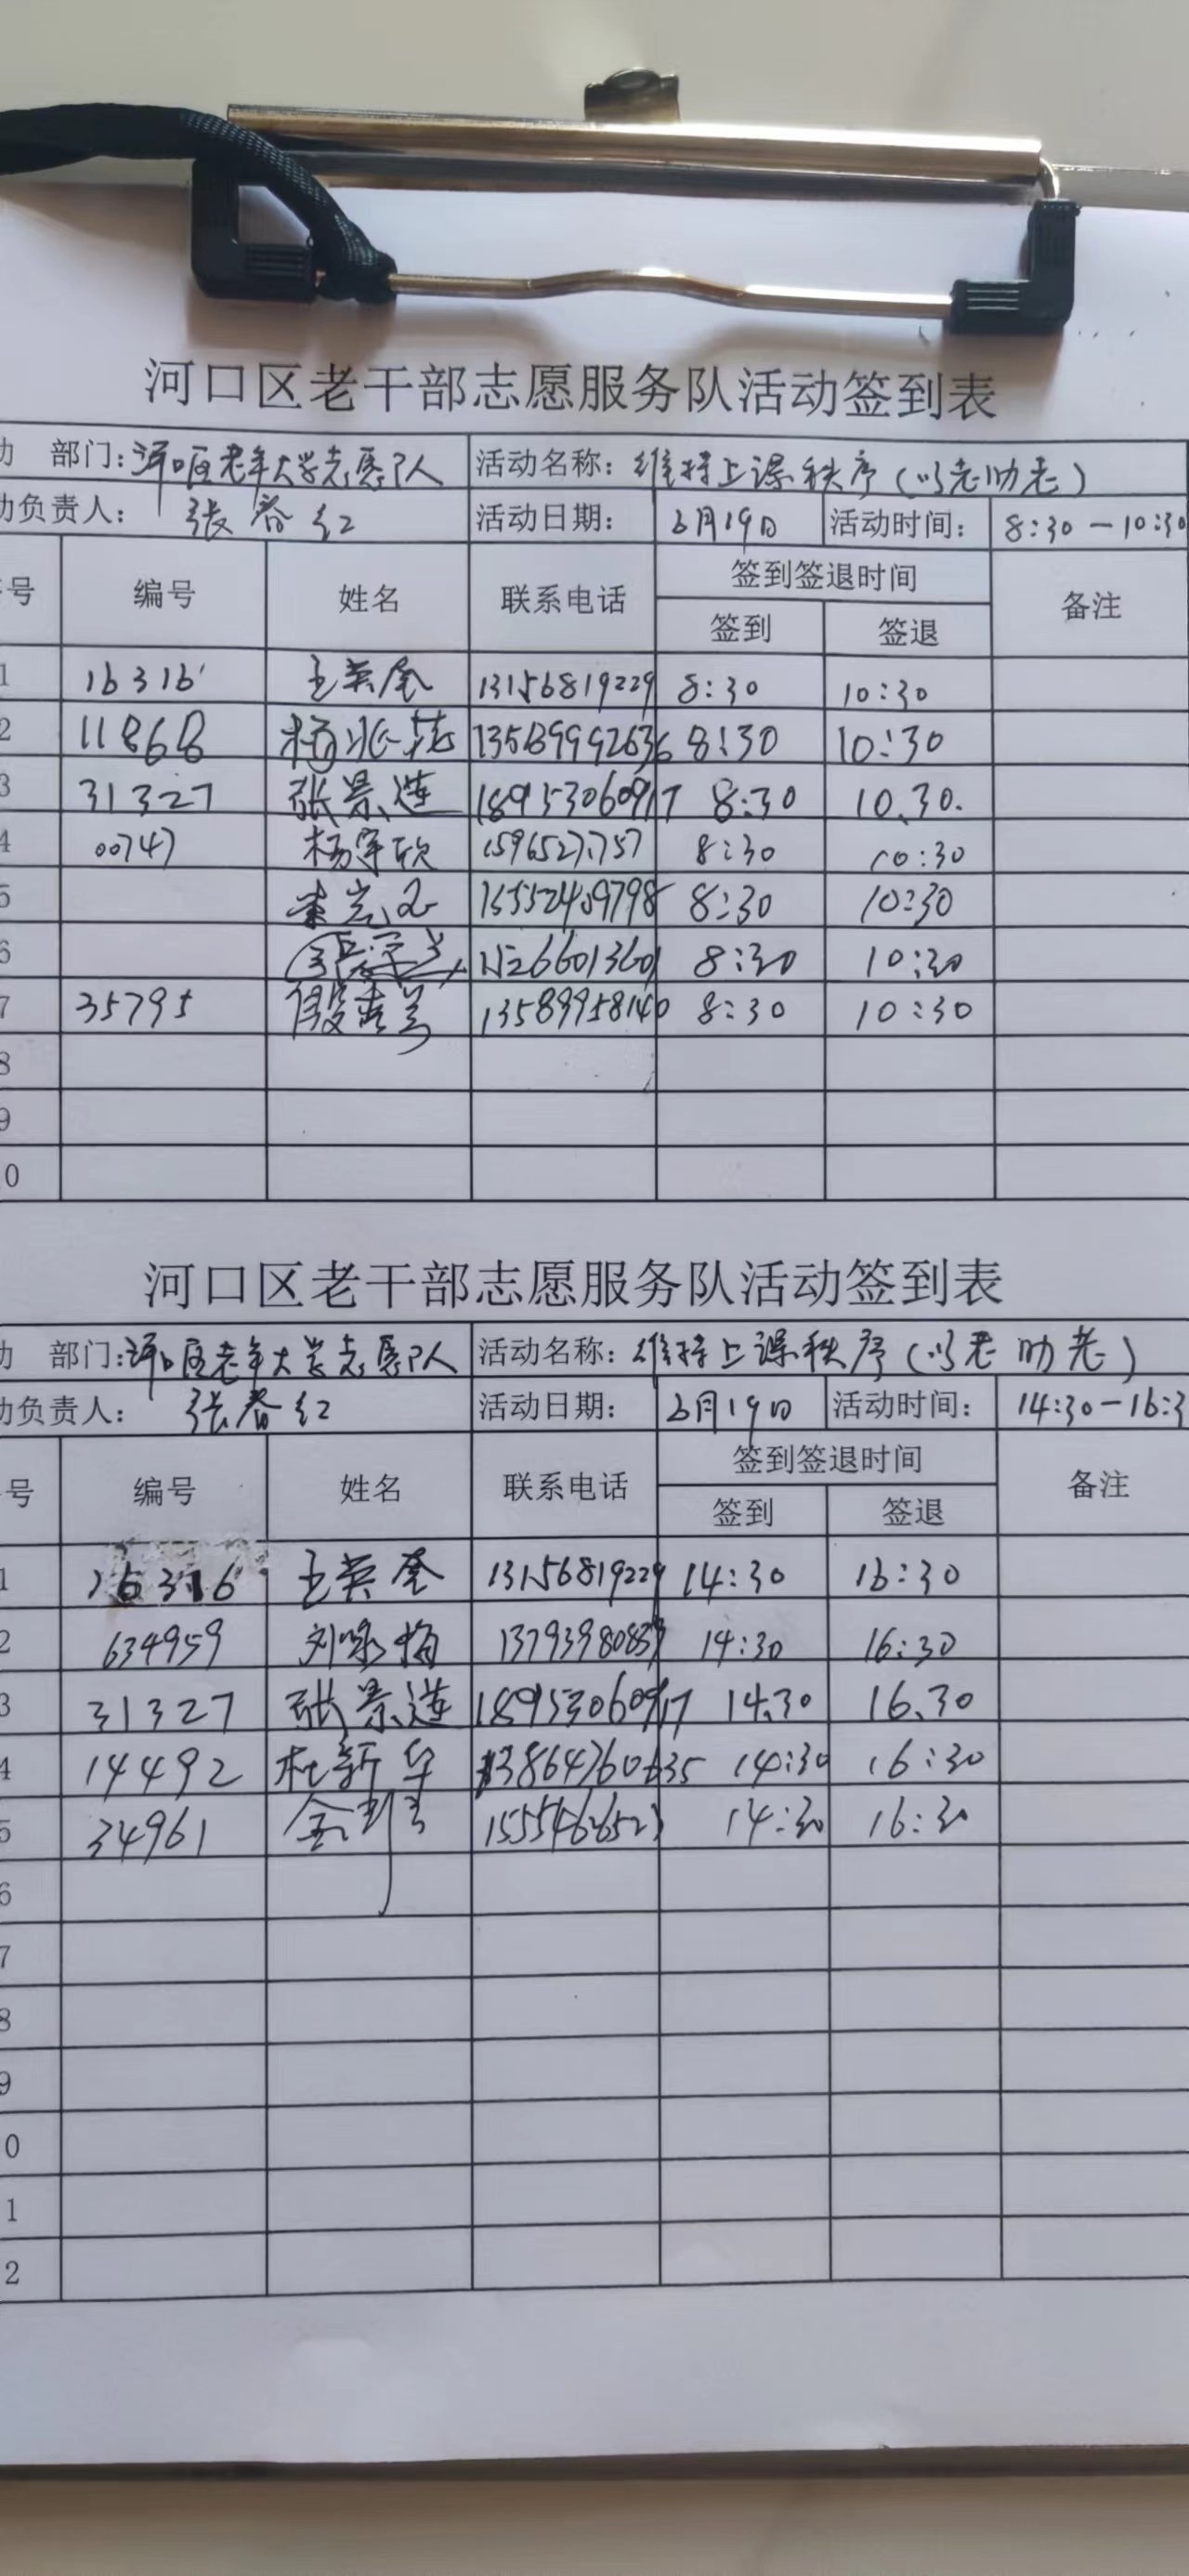 河口区老干部志愿服务队活动签到表
动 部门：河口区老年大学志愿队 活动名称：维持上课秩序（以老助老）
动负责人： 张春红 活动日期： 6月19日 活动时间： 8:30—10:30
号 编号 姓名 联系电话 签到签退时间 备注
签到 签退
1 16316 王英奎 13156819229 8:30 10:30
2 11868 杨 13589992636 8:30 10:30
3 31327 张景莲 189153060917 8:30 10.30.
4 00747 杨 8:30 10:30
5 8:30 10:30
6 15266013601 8:30 10:30
7 35795 殷秀兰 13589958140 8:30 10:30
8
9
0
河口区老干部志愿服务队活动签到表
动 部门：河口区老年大学志愿队 活动名称：维持上课秩序（以老助老）
动负责人： 张春红 活动日期： 6月19日 活动时间： 14:30—16:3
号 编号 姓名 联系电话 签到签退时间 备注
签到 签退
1 16316 王英奎 13156819229 14:30 16:30
2 634959 刘咏梅 14:30 16:30
3 31327 张景莲 14.30 16.30
4 14492 杜新华 14:30 16:30
5 34961 14:30 16:30
6
7
8
9
0
1
2